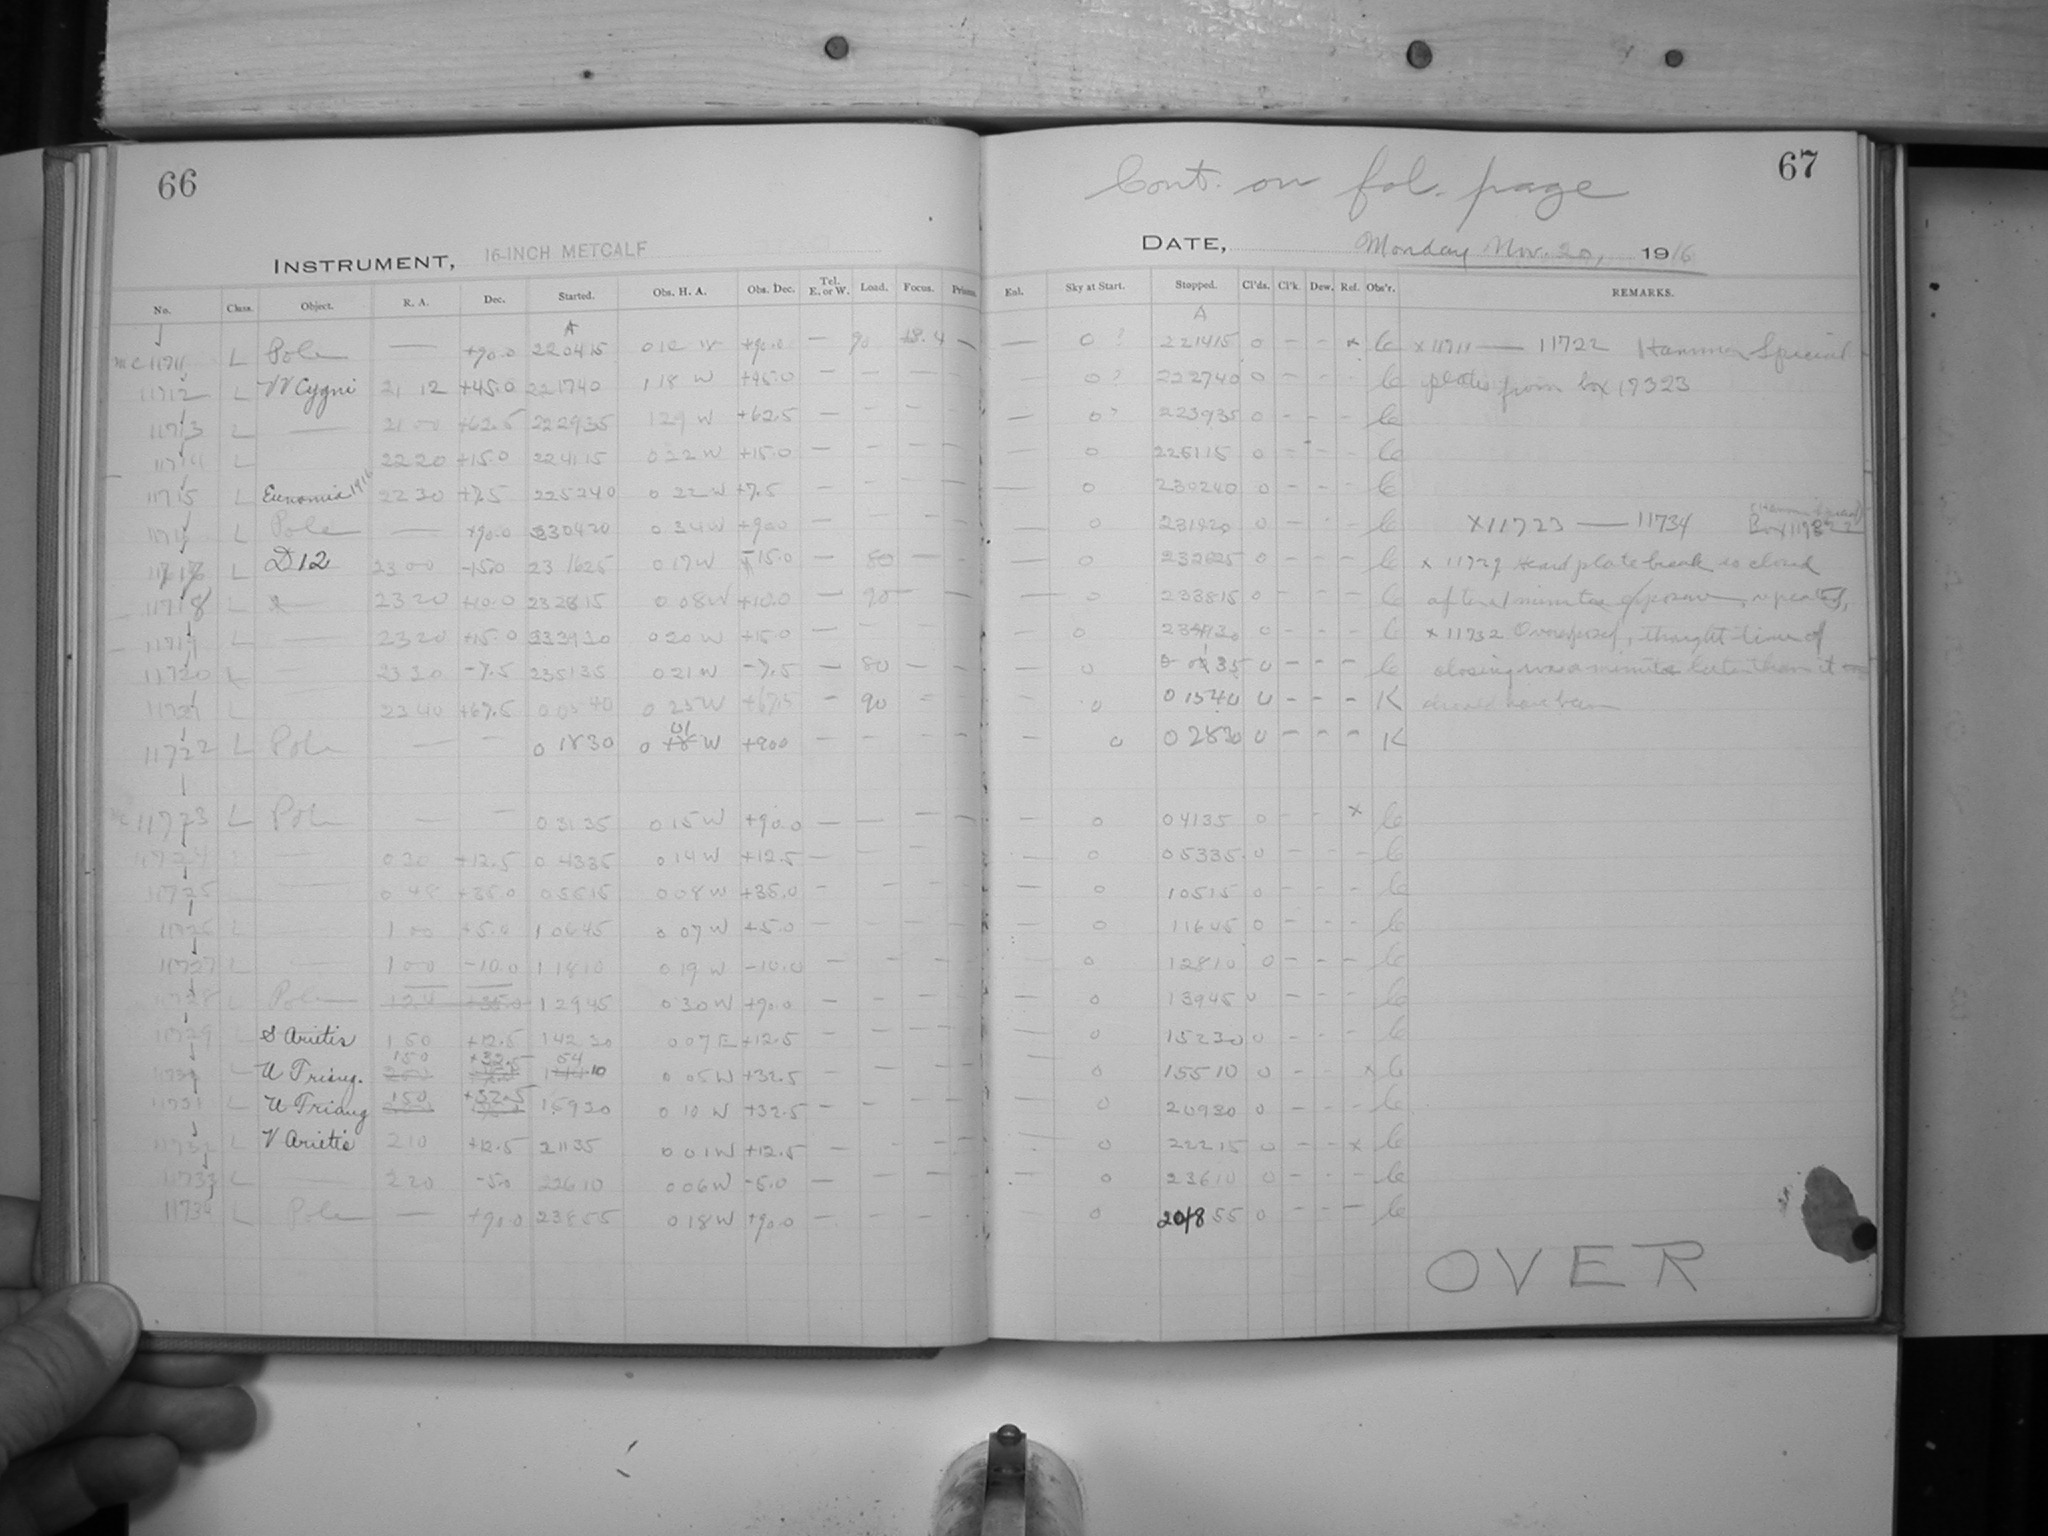 66
INSTRUMENT, 16-INCH METCALF
No. Class. Object. R. A. Dec. Started. Obs. H. A. Obs. Dec. Tel. E. or W. Load. Focus. Prisms.
A
MC 11711 L Pole — +90.0 220415 +90.0 — 90 —
11712 L W Cygni 21 12 +45.0 221740 1 18 W +45.0 — — — —
11713 L — 21 00 +62.5 222935 1 29 W +62.5 — — — —
11714 L 22 20 +15.0 224115 0 22 W +15.0 — — — —
11715 L Eunomia 1916 22 30 +7.5 225240 0 22 W +7.5 — — — —
L Pole — +90.0 230420 0 34 W +90.0 — — — —
11717 L D12 23 00 -15.0 23 1625 0 17 W -15.0 — 80 — —
11718 L — 23 20 +10.0 232815 0 08 W +10.0 — 90 — —
11719 L — 23 20 +15.0 233930 0 20 W +15.0 — — — —
11720 L — 23 30 -7.5 235135 0 21 W -7.5 — 80 — —
11721 L 23 40 +67.5 0 0540 0 25 W +67.5 — 90 — —
11722 L Pole — — 0 1830 0 01 W +900 — — — —
MC 11723 L Pole — — 0 3135 0 15 W +90.0 — — — —
11724 L — 0 30 +12.5 0 4335 0 14 W +12.5 — — — —
11725 L — 0 48 +35.0 0 5515 0 08 W +35.0 — — — —
11726 L — 1 00 +5.0 1 0645 0 07 W +5.0 — — — —
11727 L — 1 00 -10.0 1 1810 0 19 W -10.0 — — — —
11728 L Pole 1 24 +35.0 1 2945 0 30 W +90.0 — — — —
11729 L S Arietis 1 50 +12.5 1 4230 0 07 E +12.5 — — — —
11730 L U Triang. 150 +32.5 1 54 10 0 05 W +32.5
11731 L U Triang 150 +32.5 1 5930 0 10 W +32.5 — — — —
11732 L V Arietis 2 10 +12.5 2 1135 0 01 W +12.5 — — — —
11733 L — 2 20 -5.0 2 2610 0 06 W -5.0 — — — —
11734 L Pole — +90.0 2 3855 0 18 W +90.0 — — — —
67
Cont. on fol. page
DATE, Monday Nov. 20, 1916
Enl. Sky at Start. Stopped. Cl'ds. Cl'k. Dew. Ref. Obs'r. REMARKS.
A
— 0 ? 221415 0 — — x C x 11711 — 11722 Hammer Special
0 ? 222740 0 — — — C plates from box 17323
— 0 ? 223935 0 — — — C
— 0 225115 0 — — — C
— 0 230240 0 — — — C
— 0 231420 0 — — — C x 11723 — 11734 (Hammer Special)
— 0 232625 0 — — — C x 11729 Hard plate break so closed
— 0 233815 0 — — — C after 1 minutes exposure, repeated,
— 0 234930 0 — — — C x 11732 Overexposed, thought time of
— 0 0 0135 0 — — — C closing was a minute later than it
— 0 0 1540 0 — — — K should have been
— 0 0 2830 0 — — — K
— 0 04135 0 — — x C
— 0 05335 0 — — — C
— 0 10515 0 — — — C
— 0 11645 0 — — — C
— 0 12810 0 — — — C
— 0 13945 0 — — — C
— 0 15230 0 — — — C
— 0 15510 0 — — x C
— 0 20930 0 — — — C
— 0 22215 0 — — x C
— 0 23610 0 — — — C
— 0 24855 0 — — — C
OVER